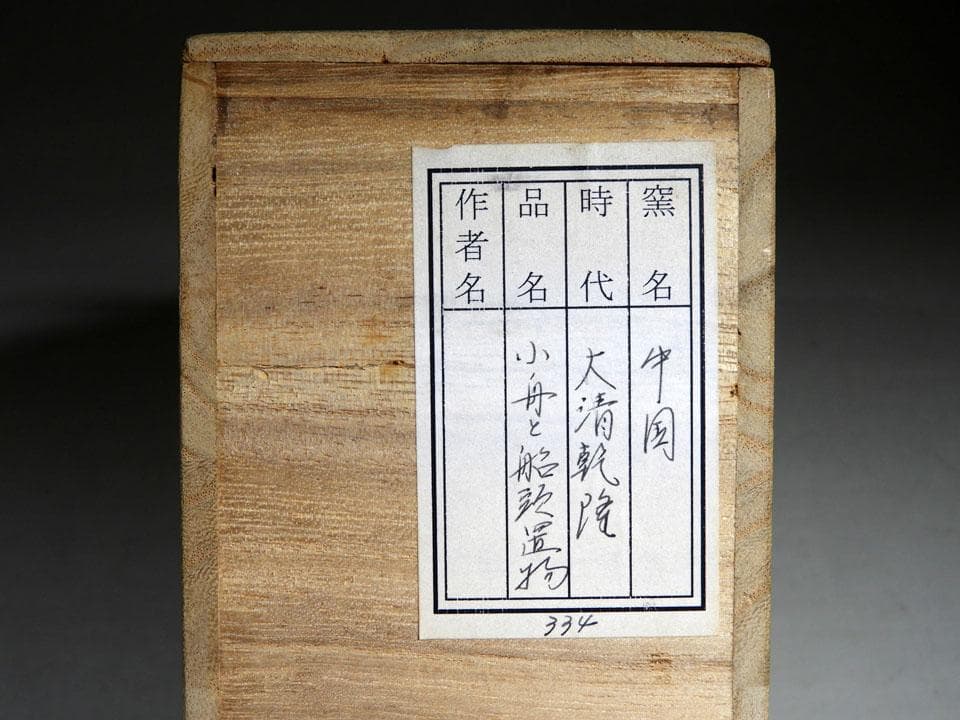 窯名
中国
時代
大清乾隆
品名
小舟と船頭置物
作者名
334